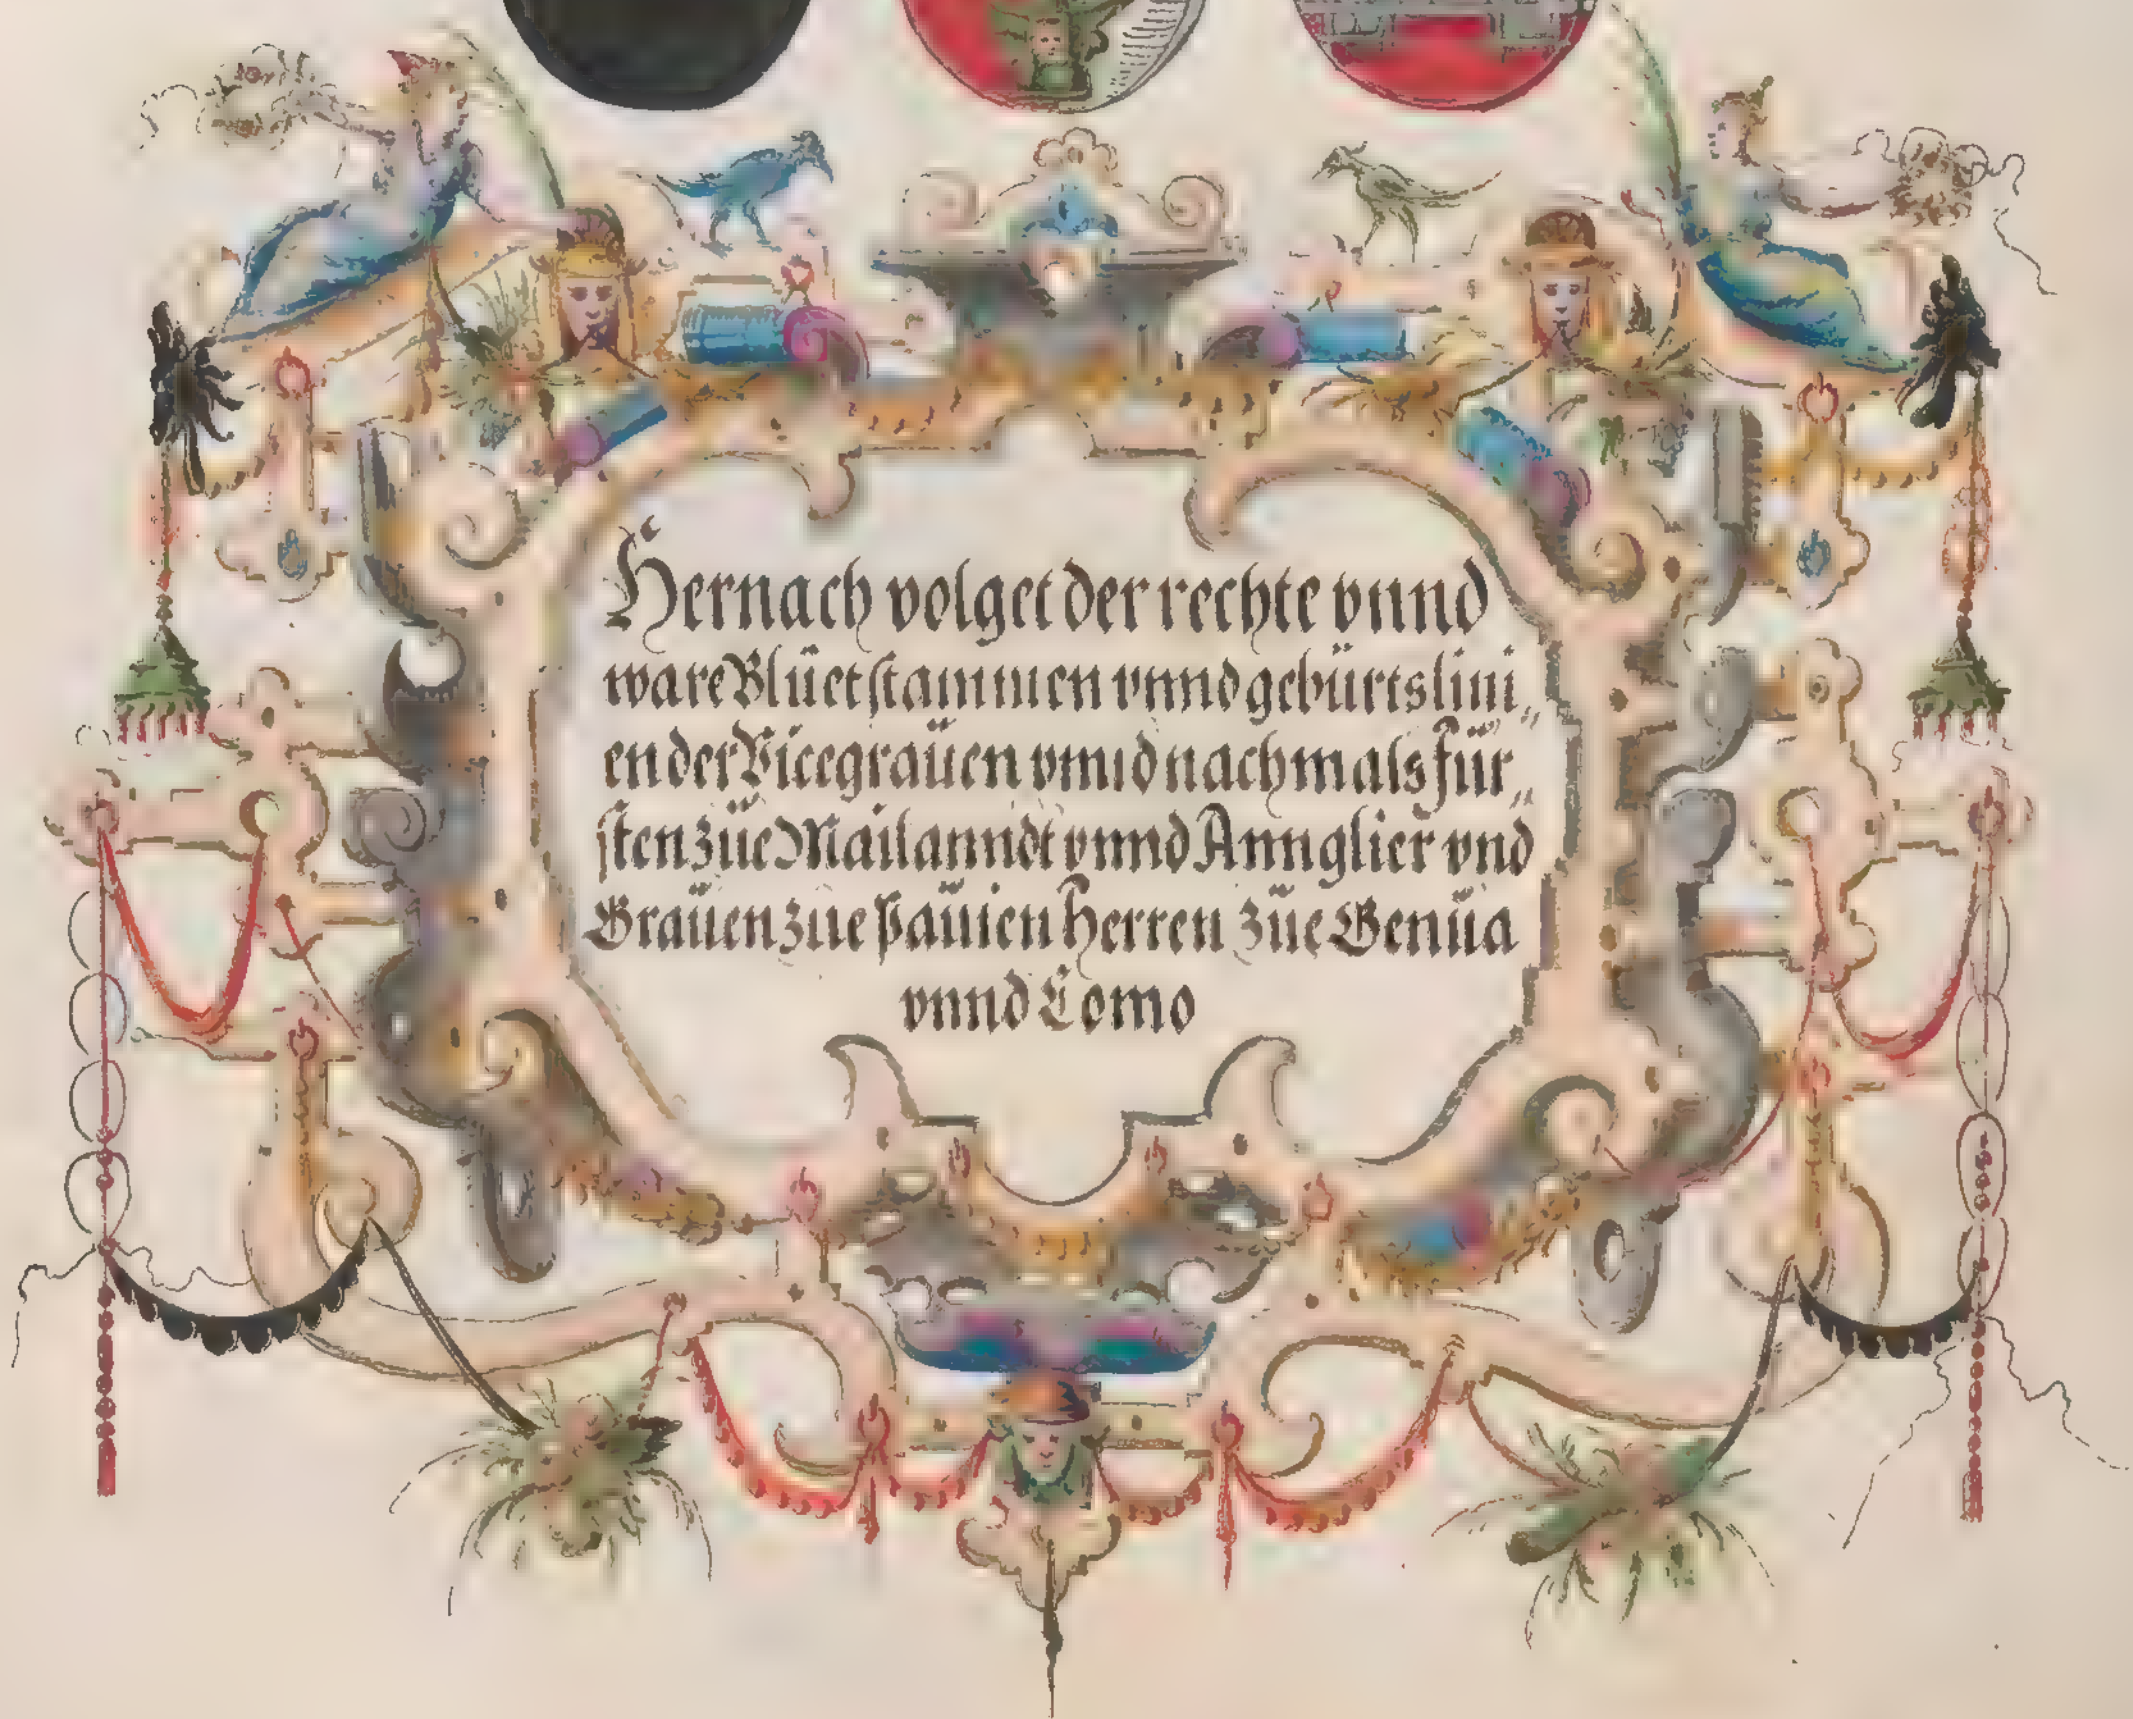 Hernach volget der rechte vnnd
ware Blüet stammen vnnd gebürts lini„
en der Vicegraüen vnnd nachmals für„
sten züe Mailanndt vnnd Annglier vnd
Graüen züe Paüien Herren züe Genüa
vnnd Como